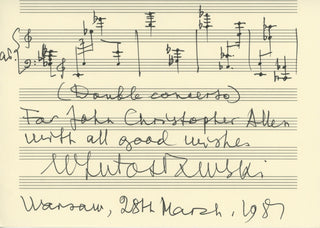 (Double concerto)
For John Christopher Allen
with all good wishes
W Lutosławski
Warsaw, 28th March, 1987